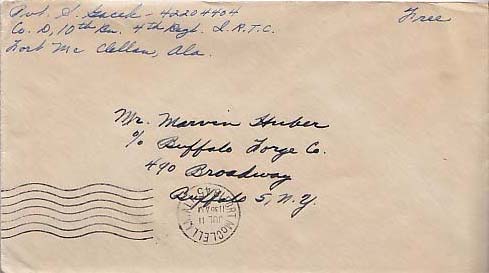 Pvt. S. Gacek - 42204404
Free
Co. D, 10th Bn. 4th Regt. I.R.T.C.
Fort Mc Clellan, Ala.
Mr. Marvin Huber
c/o Buffalo Forge Co.
490 Broadway
Buffalo 5, N.Y.
FORT McCLELLAN
JUL 11
1130AM
1945